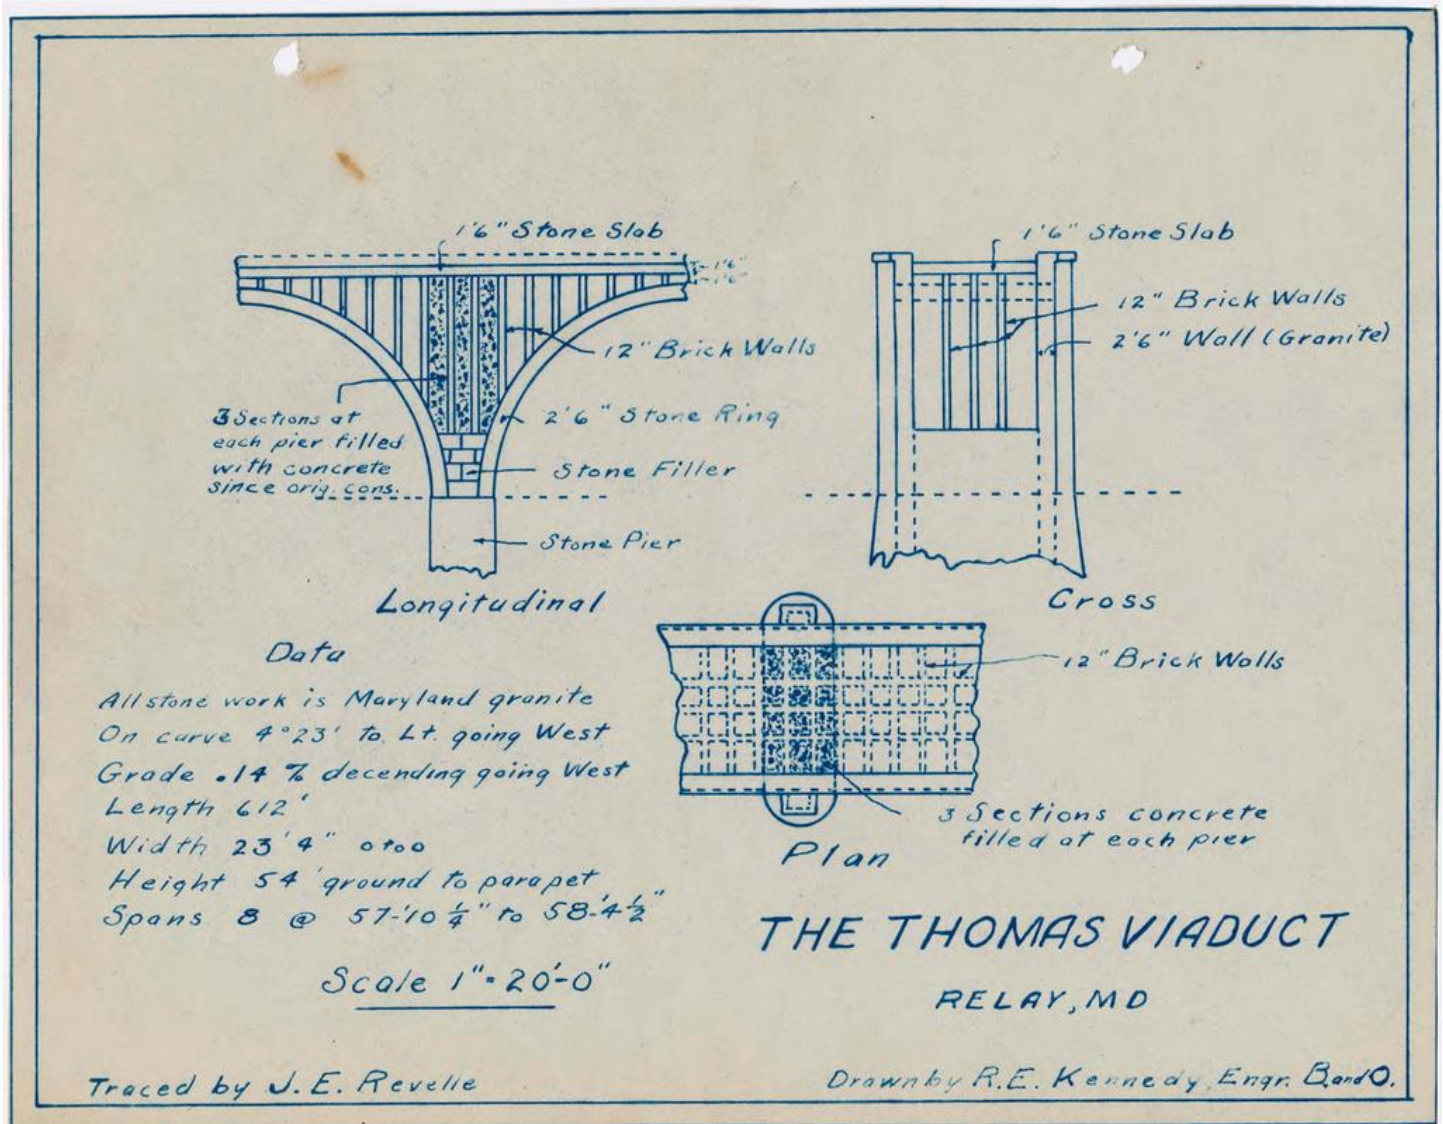 1'6" Stone Slab
12" Brick Walls
3 Sections at
each pier filled
with concrete
since orig. cons.
2'6" Stone Ring
Stone Filler
Stone Pier
Longitudinal
1'6" Stone Slab
12" Brick Walls
2'6" Wall (Granite)
Cross
12" Brick Walls
3 Sections concrete
filled at each pier
Plan
Data
All stone work is Maryland granite
On curve 4°23' to Lt. going West
Grade .14 % decending going West
Length 612'
Width 23'4" o to o
Height 54' ground to parapet
Spans 8 @ 57-'10 1/4" to 58-'4 1/2"
Scale 1"= 20'-0"
THE THOMAS VIADUCT
RELAY, MD
Traced by J. E. Revelle
Drawn by R.E. Kennedy, Engr. B. and O.